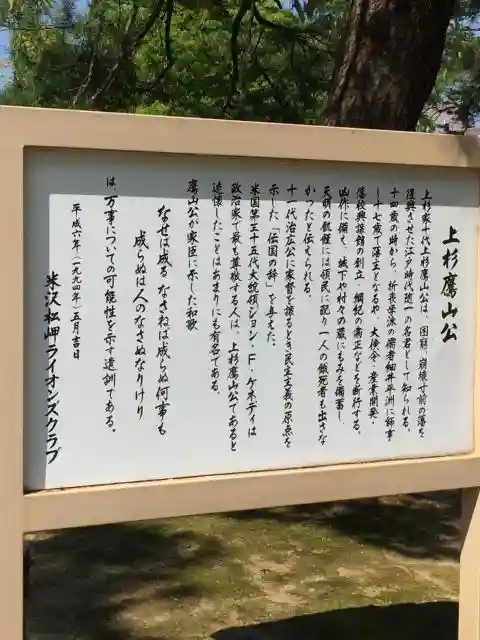 上杉鷹山公
上杉家十代上杉鷹山公は、困窮、崩壊寸前の藩を
復興させた江戸時代随一の名君として知られる。
十四歳の時から、折衷学派の儒者細井平洲に師事
し十七歳で藩主となるや、大倹令・産業開発・
藩校興譲館の創立・綱紀の粛正などを断行する。
凶作に備え、城下や村々の蔵にもみを備蓄し、
天明の飢饉には領民に配り一人の餓死者も出さな
かったと伝えられる。
十一代治広公に家督を譲るとき民主主義の原点を
示した「伝国の辞」を与えた。
米国第三十五代大統領ジョン・F・ケネディは
政治家で最も尊敬する人は、上杉鷹山公であると
述懐したことはあまりにも有名である。
鷹山公が家臣に示した和歌
なせば成る なさねは成らぬ何事も
成らぬは人のなさぬなりけり
は、万事についての可能性を示す遺訓である。
平成六年(一九九四年)五月吉日
米沢松岬ライオンズクラブ